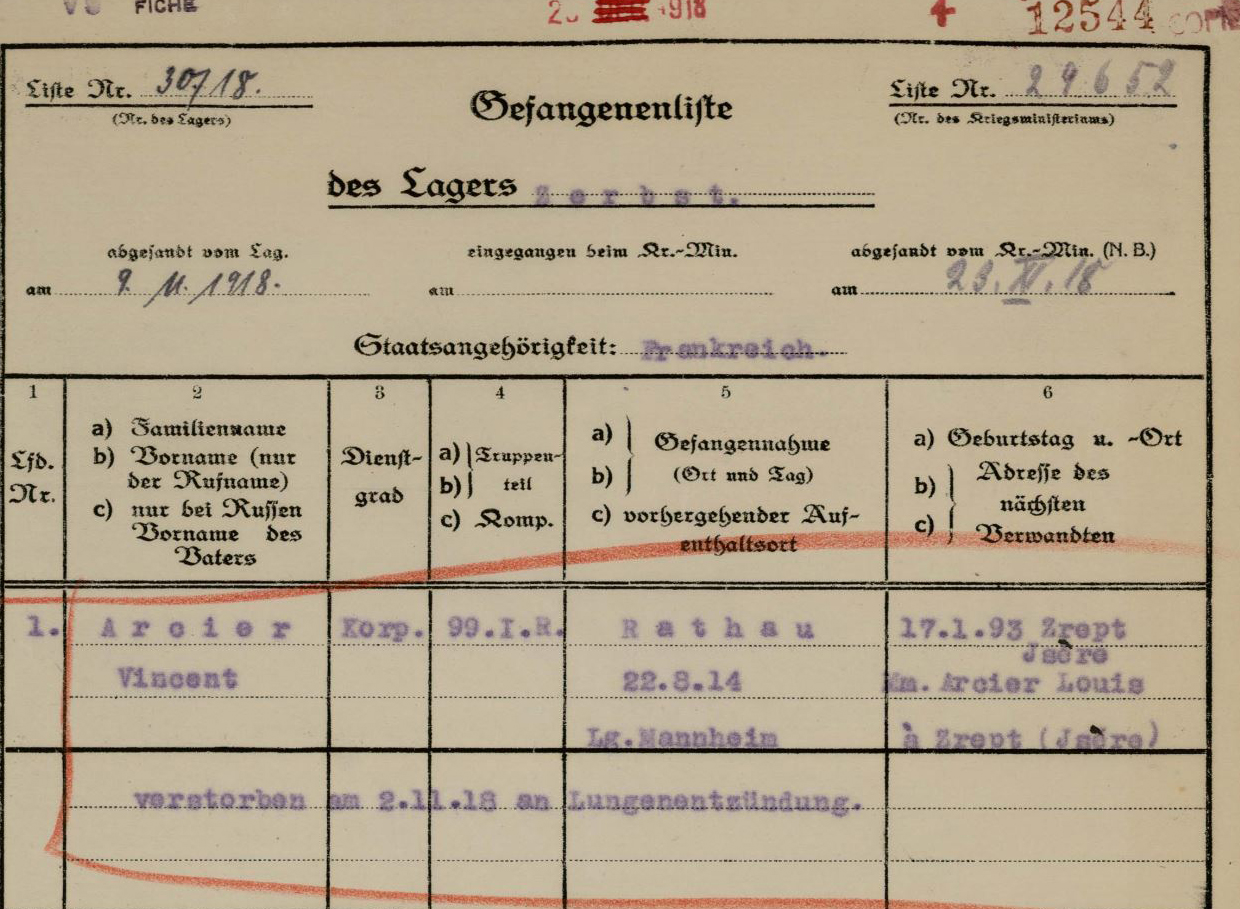 FICHE
1918
12544
Liste Nr. 30718.
(Nr. des Lagers)
Gefangenenliste
Liste Nr. 29652
(Nr. des Kriegsministeriums)
des Lagers Zerbst.
abgesandt vom Lag.
am 9. 11. 1918.
eingegangen beim Kr.-Min.
am
abgesandt vom Kr.-Min. (N. B.)
am 23. XI. 18
Staatsangehörigkeit: Frankreich.
1
Lfd.
Nr.
2
a) Familienname
b) Vorname (nur
der Rufname)
c) nur bei Russen
Vorname des
Vaters
3
Dienst-
grad
4
a) Truppen-
b) teil
c) Komp.
5
a) Gefangennahme
b) (Ort und Tag)
c) vorhergehender Auf-
enthaltsort
6
a) Geburtstag u. -Ort
b) Adresse des
nächsten
c) Verwandten
1. Arcier Korp. 99.I.R. Rathau 17.1.93 Zrept
Jsère
Vincent 22.8.14 Mm. Arcier Louis
Lg.Mannheim à Zrept (Jsère)
verstorben am 2.11.18 an Lungenentzündung.